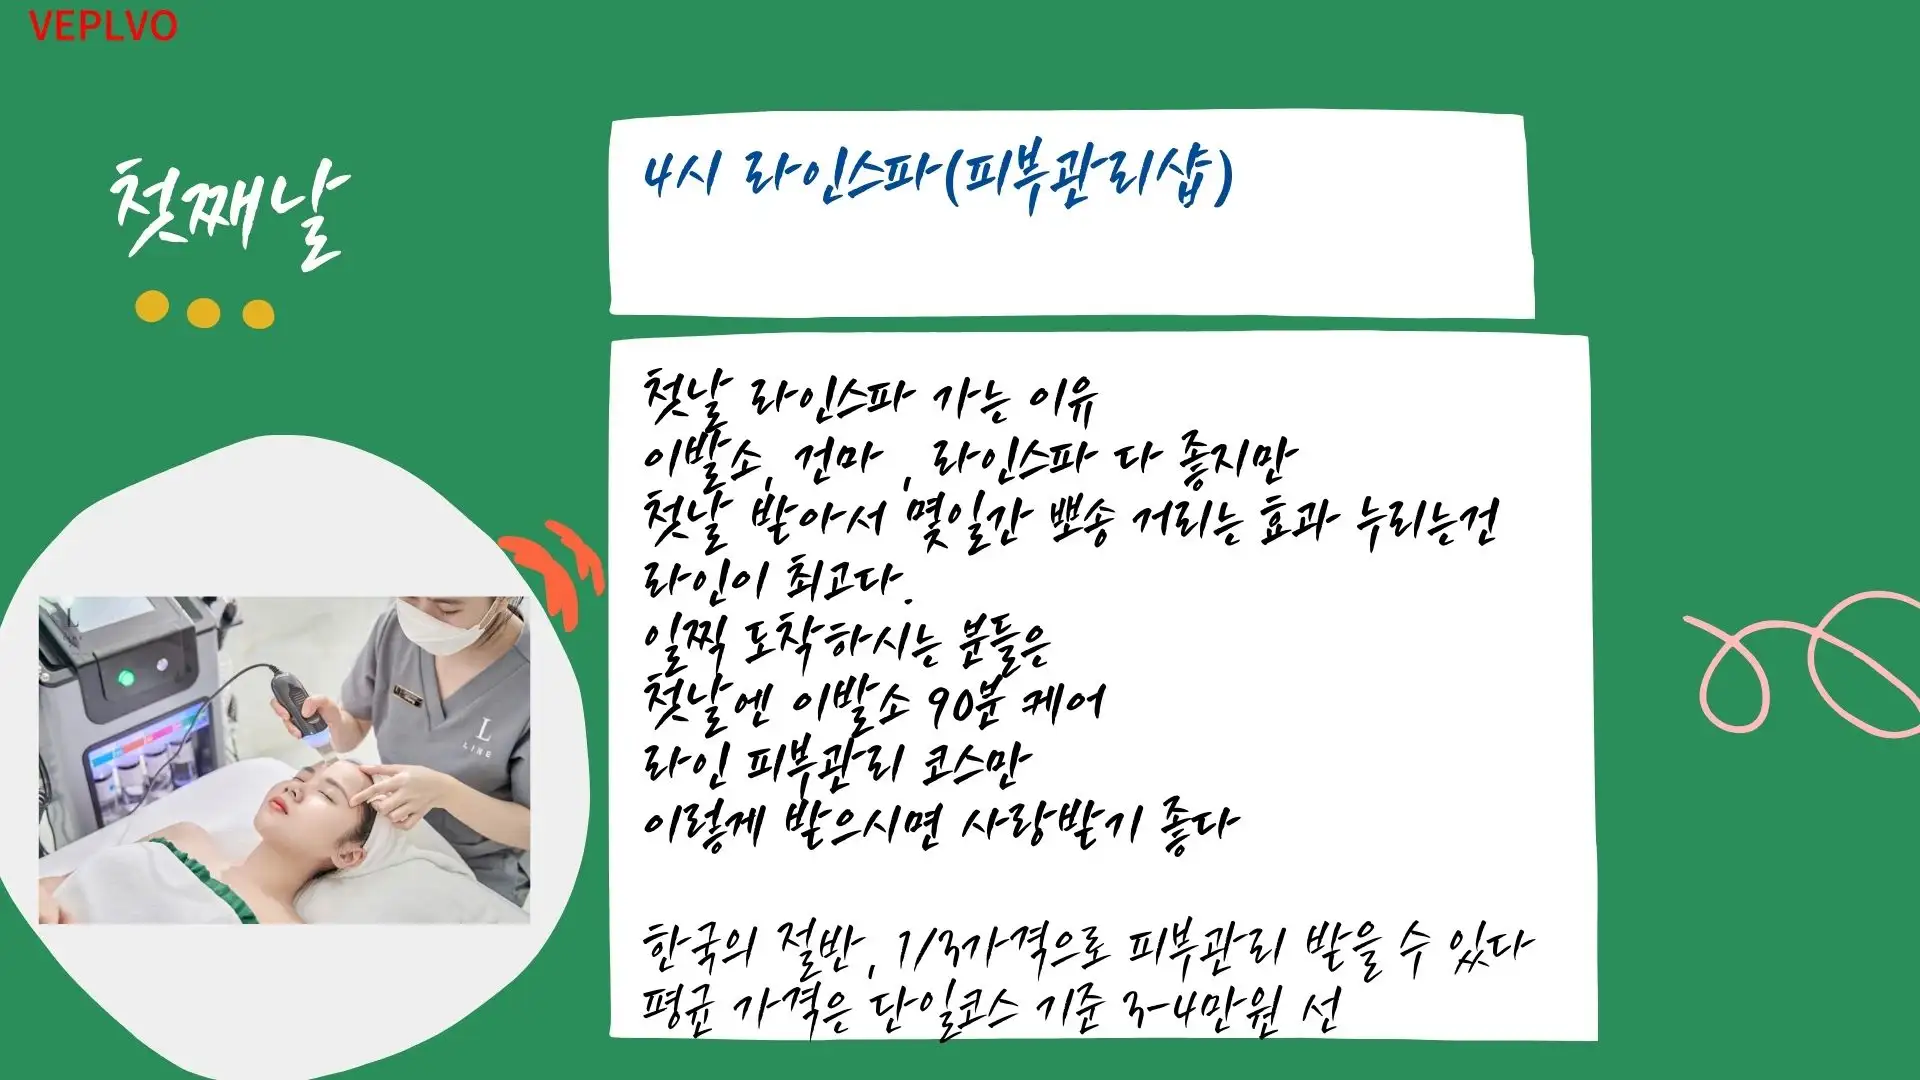 VEPLVO
첫째날
4시 라인스파(피부관리샵)
첫날 라인스파 가는 이유
이발소, 건마 , 라인스파 다 좋지만
첫날 받아서 몇일간 뽀송 거리는 효과 누리는건
라인이 최고다.
일찍 도착하시는 분들은
첫날엔 이발소 90분 케어
라인 피부관리 코스만
이렇게 받으시면 사랑받기 좋다
한국의 절반, 1/3가격으로 피부관리 받을 수 있다
평균 가격은 단일코스 기준 3-4만원 선
L
LINE